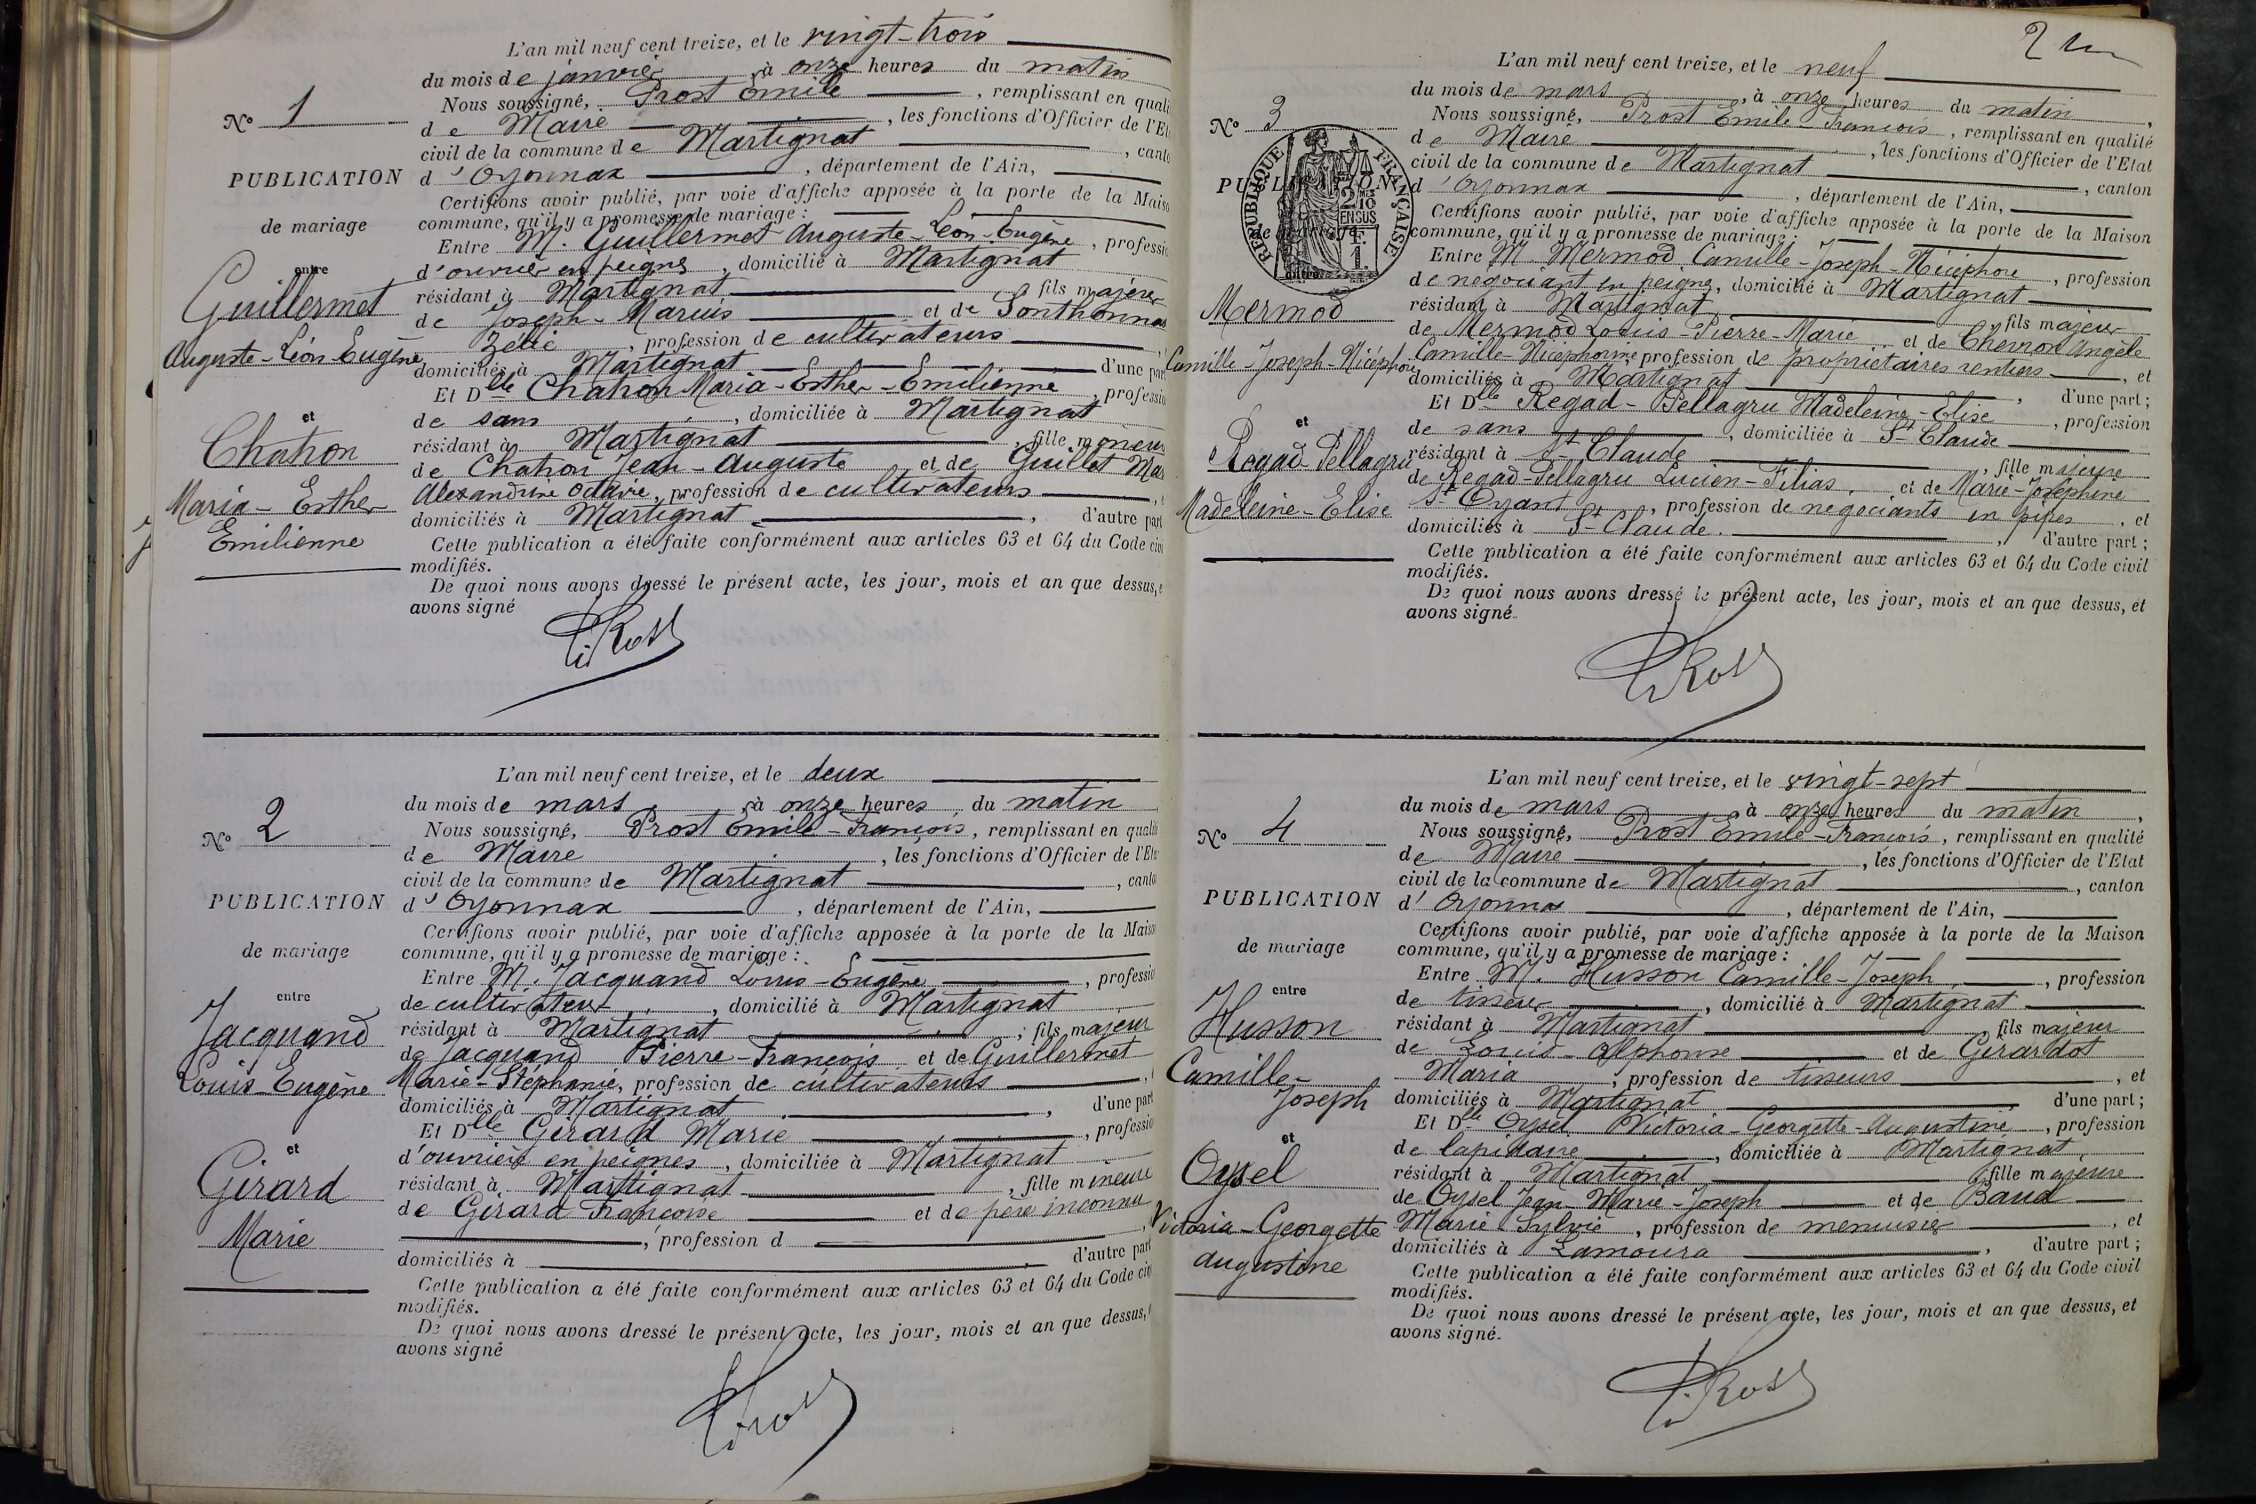 L'an mil neuf cent treize, et le vingt-trois
du mois de janvier à onze heures du matin
Nous soussigné, Prost Emile, remplissant en quali
de Maire, les fonctions d'Officier de l'Et
civil de la commune de Martignat, canto
d'Oyonnax, département de l'Ain,
Certifions avoir publié, par voie d'affiche apposée à la porte de la Maiso
commune, qu'il y a promesse de mariage :
Entre M. Guillermet Auguste-Léon-Eugène, professio
d'ouvrier en peignes, domicilié à Martignat
résidant à Martignat fils majeur
de Joseph-Marius et de Sonthonnax
Zélie, profession de cultivateurs
domiciliés à Martignat d'une part
Et Dlle Chanon Maria-Esther-Emilienne, professio
de sans, domiciliée à Martignat
résidant à Martignat, fille mineure
de Chanon Jean-Auguste et de Guillot Mar
Alexandrine Octavie, profession de cultivateurs
domiciliés à Martignat, d'autre part
Cette publication a été faite conformément aux articles 63 et 64 du Code civi
modifiés.
De quoi nous avons dressé le présent acte, les jour, mois et an que dessus, e
avons signé
E. Prost
N° 1
PUBLICATION
de mariage
entre
Guillermet
Auguste-Léon-Eugène
et
Chanon
Maria-Esther
Emilienne
L'an mil neuf cent treize, et le deux
du mois de mars, à onze heures du matin
Nous soussigné, Prost Emile-François, remplissant en qualit
de Maire, les fonctions d'Officier de l'Eta
civil de la commune de Martignat, canto
d'Oyonnax, département de l'Ain,
Certifions avoir publié, par voie d'affiche apposée à la porte de la Maiso
commune, qu'il y a promesse de mariage :
Entre M. Jacquand Louis-Eugène, professio
de cultivateur, domicilié à Martignat
résidant à Martignat ; fils majeur
de Jacquand Pierre-François et de Guillermet
Marie-Stéphanie, profession de cultivateurs
domiciliés à Martignat, d'une part
Et Dlle Girard Marie, professio
d'ouvrière en peignes, domiciliée à Martignat
résidant à Martignat, fille mineure
de Girard Françoise et de père inconnu
, profession d
domiciliés à d'autre part
Cette publication a été faite conformément aux articles 63 et 64 du Code civ
modifiés.
De quoi nous avons dressé le présent acte, les jour, mois et an que dessus,
avons signé
E. Prost
N° 2
PUBLICATION
de mariage
entre
Jacquand
Louis-Eugène
et
Girard
Marie
2
L'an mil neuf cent treize, et le neuf
du mois de mars, à onze heures du matin,
Nous soussigné, Prost Emile-François, remplissant en qualité
de Maire, les fonctions d'Officier de l'Etat
civil de la commune de Martignat, canton
d'Oyonnax, département de l'Ain,
Certifions avoir publié, par voie d'affiche apposée à la porte de la Maison
commune, qu'il y a promesse de mariage :
Entre M. Mermod Camille-Joseph-Nicéphore, profession
de négociant en peignes, domicilié à Martignat
résidant à Martignat, fils majeur
de Mermod Louis-Pierre-Marie et de Chêmon Angèle
Camille-Nicéphorine, profession de propriétaires rentiers, et
domiciliés à Martignat, d'une part ;
Et Dlle Regad-Pellagru Madeleine-Elise, profession
de sans, domiciliée à St Claude
résidant à St Claude, fille majeure
de Regad-Pellagru Lucien-Filias, et de Marie-Joséphine
St Oyant, profession de négociants en pipes, et
domiciliés à St Claude, d'autre part ;
Cette publication a été faite conformément aux articles 63 et 64 du Code civil
modifiés.
De quoi nous avons dressé le présent acte, les jour, mois et an que dessus, et
avons signé.
E. Prost
N° 3
PUBLICATION
de mariage
entre
REPUBLIQUE FRANÇAISE
2 MES 10
EN SUS
1 F.
Mermod
Camille-Joseph-Nicéphore
et
Regad-Pellagru
Madeleine-Elise
L'an mil neuf cent treize, et le vingt-sept
du mois de mars, à onze heures du matin,
Nous soussigné, Prost Emile-François, remplissant en qualité
de Maire, les fonctions d'Officier de l'Etat
civil de la commune de Martignat, canton
d'Oyonnax, département de l'Ain,
Certifions avoir publié, par voie d'affiche apposée à la porte de la Maison
commune, qu'il y a promesse de mariage :
Entre M. Husson Camille-Joseph, profession
de tisseur, domicilié à Martignat
résidant à Martignat, fils majeur
de Louis-Alphonse et de Girardot
Maria, profession de tisseurs, et
domiciliés à Martignat d'une part ;
Et Dlle Oysel Victoria-Georgette-Augustine, profession
de lapidaire, domiciliée à Martignat,
résidant à Martignat fille majeure
de Oysel Jean-Marie-Joseph et de Baud
Marie-Sylvie, profession de menuisier, et
domiciliés à Lamoura, d'autre part ;
Cette publication a été faite conformément aux articles 63 et 64 du Code civil
modifiés.
De quoi nous avons dressé le présent acte, les jour, mois et an que dessus, et
avons signé.
E. Prost
N° 4
PUBLICATION
de mariage
entre
Husson
Camille-
Joseph
et
Oysel
Victoria-Georgette
Augustine